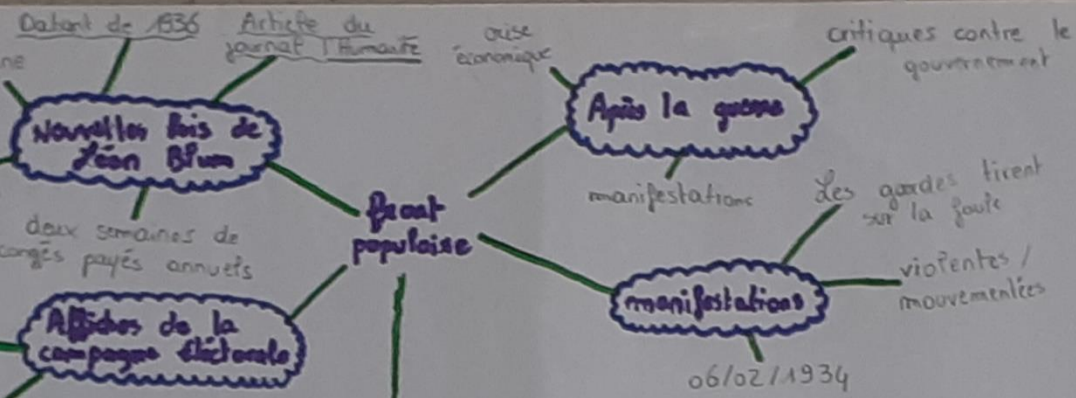 Datant de 1936
Article du
journal l'Humanité
crise
économique
critiques contre le
gouvernement
ne
Nouvelles lois de
Léon Blum
Après la guerre
manifestations
Les gardes tirent
sur la foule
deux semaines de
congés payés annuels
Front
populaire
violentes /
mouvementées
manifestations
Affiches de la
campagne électorale
06/02/1934